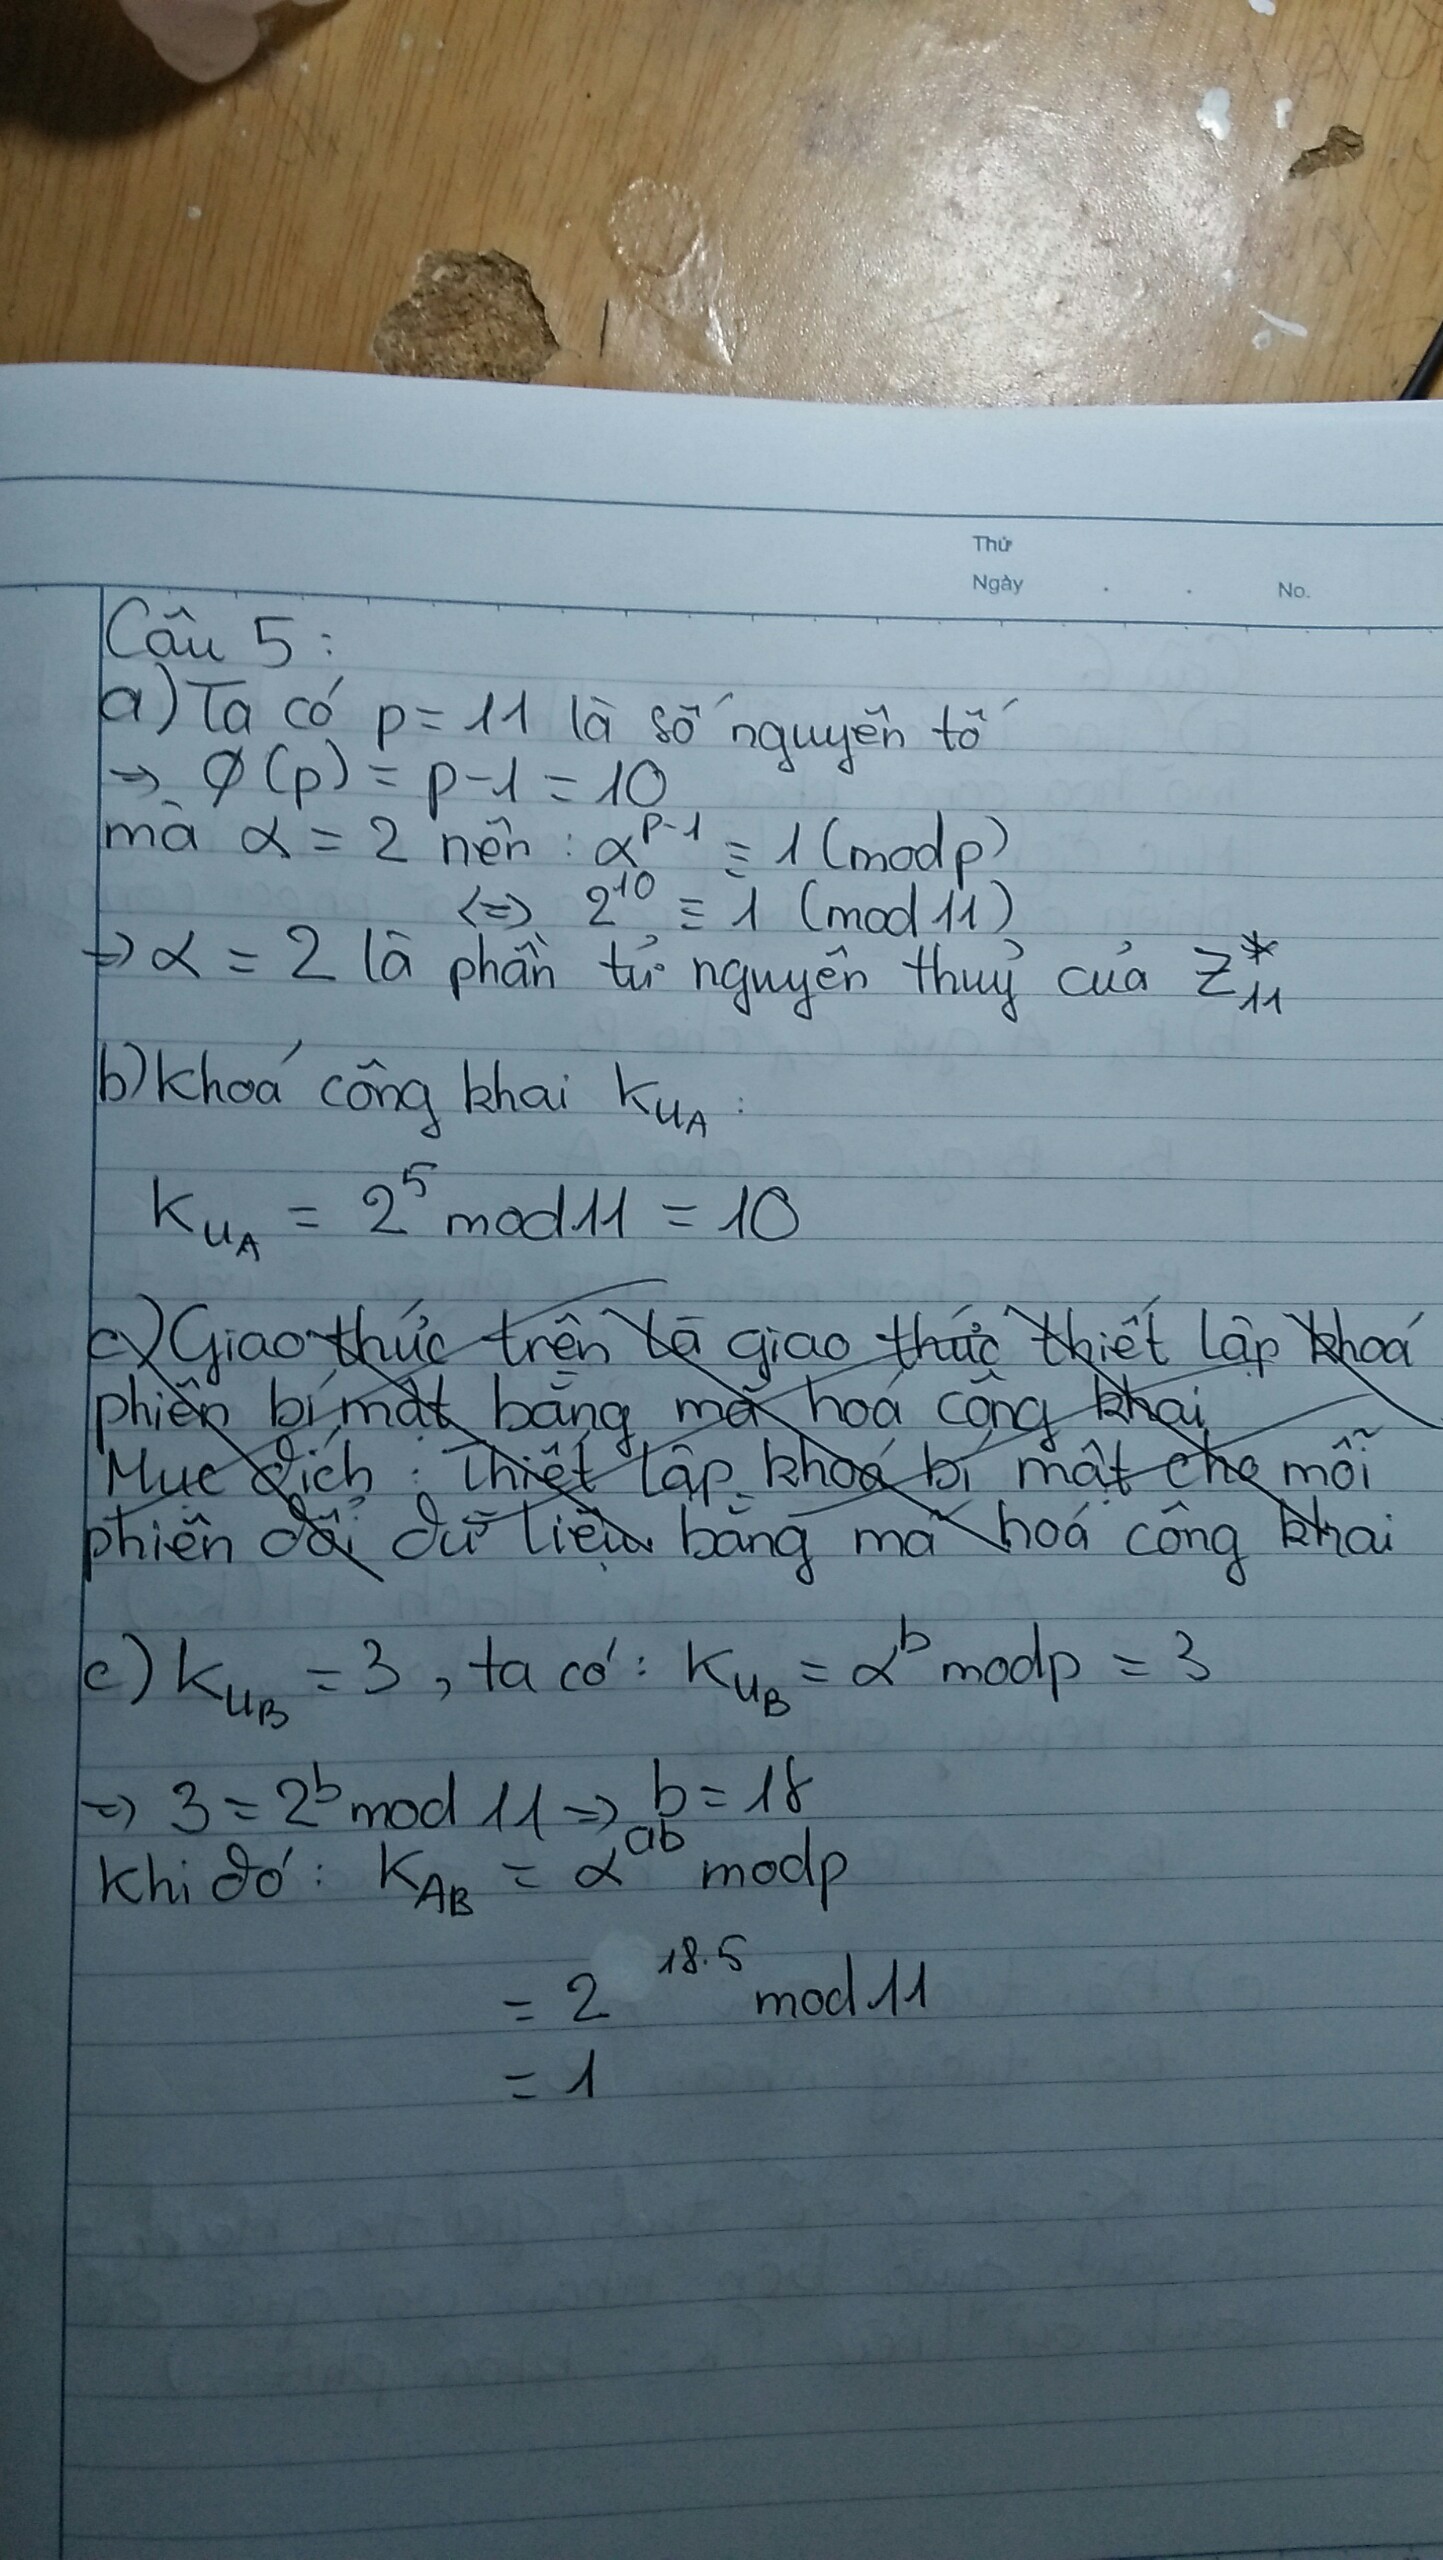 Thứ
Ngày . . No.
Câu 5:
a) Ta có p = 11 là số nguyên tố
=> Ø(p) = p-1 = 10
mà α = 2 nên : α^{p-1} ≡ 1 (mod p)
<=> 2^{10} ≡ 1 (mod 11)
=> α = 2 là phần tử nguyên thuỷ của Z*_{11}
b) Khoá công khai K_{U_A} :
K_{U_A} = 2^5 mod 11 = 10
c) Giao thức trên là giao thức thiết lập khoá
phiên bí mật bằng mã hoá công khai
Mục đích : Thiết lập khoá bí mật cho mỗi
phiên đổi dữ liệu bằng mã hoá công khai
c) K_{U_B} = 3 , ta có : K_{U_B} = α^b mod p = 3
=> 3 = 2^b mod 11 => b = 18
Khi đó : K_{AB} = α^{ab} mod p
= 2^{18.5} mod 11
= 1